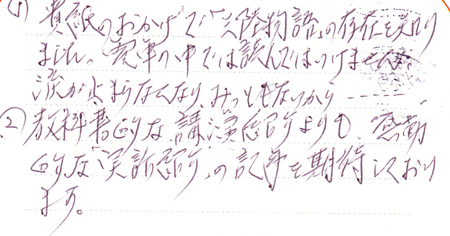 (1) 貴紙のおかげで「六階物語」の存在を知り
ました。電車の中では読んではいけません
涙が止まらなくなり、みっともないから
(2) 教科書的な講演紹介よりも、感動
的な「実話紹介」の記事を期待しており
ます。